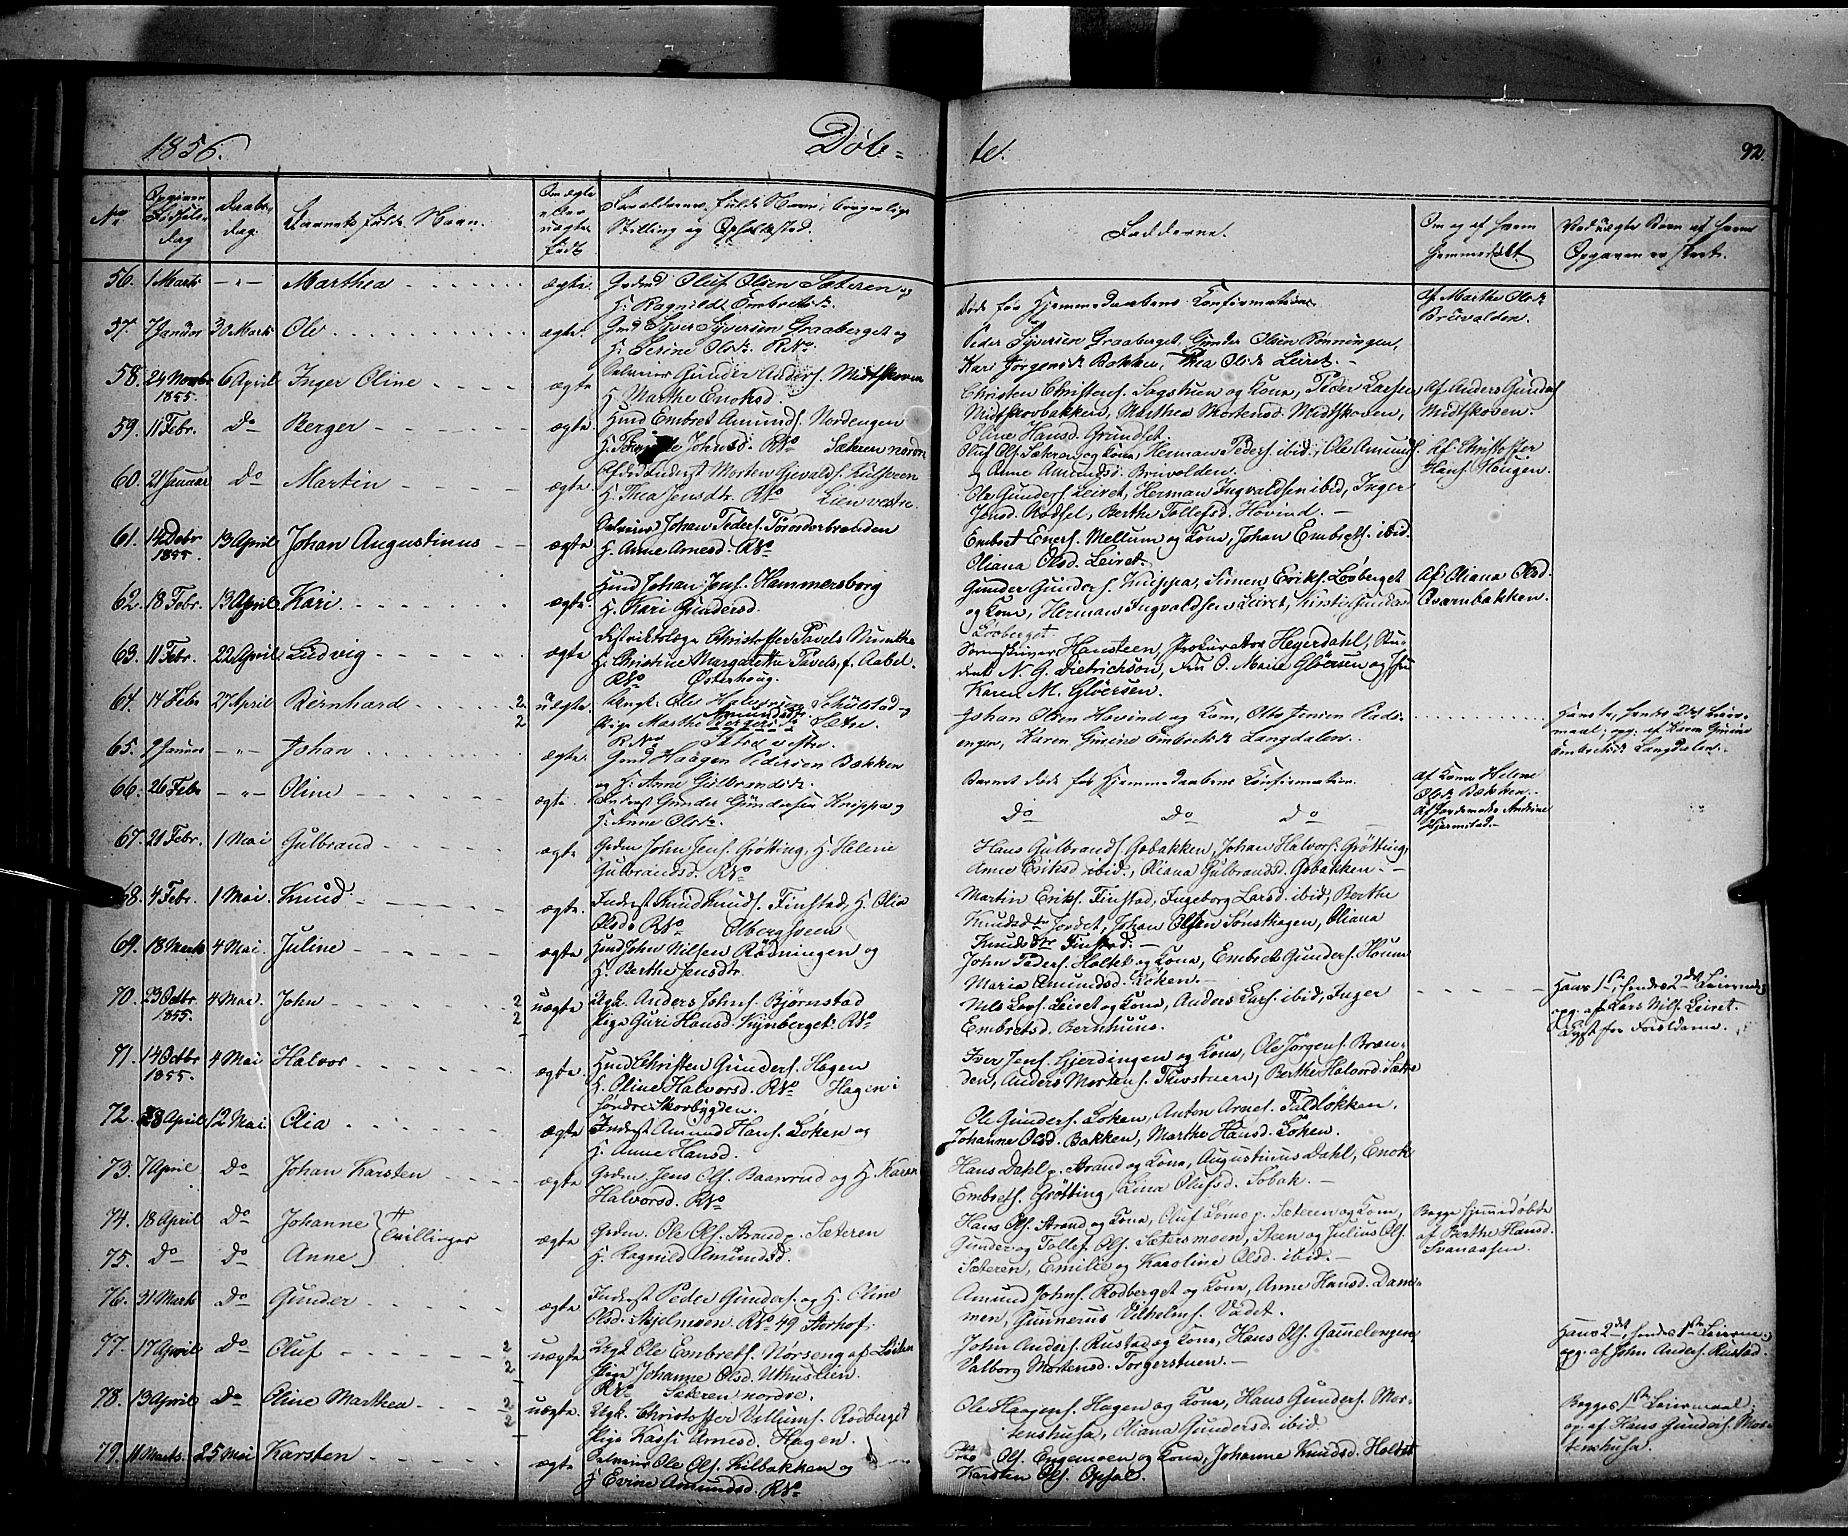 1856.
Døb-
te.
92.
No
Opgiven Fødsels-dag
Daabs-dag.
Barnets fulde Navn.
Om ægte eller uægte født
Forældrenes fulde Navn, borgerlige Stilling og Opholdssted.
Faddernes
Om og af hvem hjemmedøbt
Ved uægte Børn af hvem Opgaven er skeet.
56. 1 Marts -"- Marthea ægte. Oluf Olsen Sæteren og
H. Ragnild Embretsdr.
Døde før Hjemmedaabens Confirmation.
Af Marthe Olsdr
57. 7 Januar 30 Marts Ole ægte. Gmd Syver Syversen Graaberget og
H. Serine Olsdr.
Peder Syversen Graaberget, Gunder Olsen Rønningen,
Kari Jørgensdr Bakken, Thea Olsdr Leiret.
58. 24 Novbr 1855. 6 April Inger Oline ægte Gunder Anders. Midtskoven
H. Marthe Enoksd.
Christen Christens. Sagstuen og Kone, Peder Larsen
Midtskovbakken, Marthea Mortensd. Midtskoven,
Oline Hansd. Grundset
Af Anders Gunders
Midtskoven.
59. 11 Febr. Do Berger ægte Hmd Embret Amunds. Nordengen
Johnsd. Sæteren nordre
Oluf Ols. Sæteren og Kone, Herman Peders. ibid., Ole Amunds.
og Anne Amundsd. Bruvolden.
Af Christoffer
Hans. Haugen
60. 21 Januar Do Martin ægte. Morten
H. Thea Jensdtr. Lien vestre.
Ole Gunders. Leiret, Herman Ingvaldsen ibid, Inger
Jensd. Nodset, Berthe Tollefsd. Hovind.
61. 14 Decbr 1855. 13 April Johan Augustinus ægte. Johan Peders.
H. Anne Arnesd.
Embret Eners. Mellum og Kone, Johan Embrets. ibid.
Oliana Olsd. Leiret.
62. 18 Febr. 13 April Kari ægte. Hmd Johan Jens. Hammersborg
H. Kari Gundersd.
Gunder Gunders. Knippa, Simen Eriks. Løvberget
og Kone, Herman Ingvaldsen Leiret, Kirsti Gundersd
Løvberget
Af Oliana Olsd.
Qvarnbakken.
63. 11 Febr. 22 April Ludvig ægte. Distriktslæge Christoffer Pavels Munthe
H. Christine Margarethe Pavels, f. Aabel.
Østerhaug.
Sorenskriver Hansteen, Prokurator Heyerdahl, Stu-
dent N. G. Dietrichson, Fru O. Marie Gløersen og
Karen M. Gløersen.
64. 14 Febr 27 April Bernhard 2 2 uægte. Ungk. Ole
Pige Marthe Amundsdtr Sætre.
Sætre vestre.
Johan Olsen Hovind og Kone, Otto Jensen
engen, Karen Gurine Embretsdr Langdalen.
opg. af Karen Gurine
Embretsdr Langdalen.
65. 9 Januar -"- Johan ægte. Gmd Haagen Pedersen Bakken
og H. Anne Gulbrandsdr.
Barnet døde før Hjemmedaabens Confirmation.
Af Kone Helene
Olsdr Bakken.
66. 26 Febr -"- Oline ægte. Inderst Gunder Gundersen Knippa og
H. Anne Olsdr.
Do Do Do
Af Jordemoder Andrine
Hjermstad.
67. 21 Febr. 1 Mai Gulbrand ægte John Jens. Grøtting, H. Helene
Gulbrandsd.
Hans Gulbrands. Gobakken, Johan Halvors. Grøtting,
Anne Eriksd ibid., Oliana Gulbrandsd. Gobakken.
68. 4 Febr. 1 Mai. Knud ægte. Inderst Knud Knuds. Finstad, H. Olia
Olsdr Olbergsveen
Martin Eriks. Finstad, Ingeborg Larsd. ibid, Berthe
Knudsdtr Jordet, Johan Olsen Sønsthagen, Oliana
Knudsdtr Finstad.
69. 18 Marts 4 Mai. Juline ægte Hmd John Nilsen Rødningen og
H. Berthe Jensdtr.
John Peders. Holtet og Kone, Embret Gunders.
Maria Amundsd. Løken.
70. 23 Octbr. 1855. 4 Mai. John 2 2 uægte Ungk. Anders Johns. Bjørnstad
Pige Guri Hansd. Kynberget.
Nils Lars. Leiret og Kone, Anders Lars. ibid, Inger
Embretsd. Bernhuus.
Hans 1ste, hendes 2det Leiermaal
opg. af Lars Nils. Leiret.
71. 14 Octbr 1855. 4 Mai Halvor ægte. Hmd Christen Gunders. Hagen
H. Oline Halvorsd. Hagen i
søndre Skovbygden.
Iver Jens. Gjerdingen og Kone, Ole Jørgens. Bron-
den, Anders Mortens. Berthe Halvord. Sætre
72. 28 April 12 Mai. Olia ægte Inderst Amund Hans. Løken og
H. Anne Hansd.
Ole Gunders. Løken, Anton Arnes. Faldløkken.
Johanne Olsd. Bakken, Marthe Hansd. Løken.
73. 7 April Do Johan Karsten ægte Jens Ols. Baanrud og H. Karen
Halvorsd.
Hans Dahl p. Strand og Kone, Augustinus Dahl, Enok
Embrets. Grøtting, Lina Olufsd. Sobak.
74. 18 April Do Johanne } Tvillinger
75. Do Do Anne
ægte Ole Ols. Strand p. Sæteren
H. Ragnild Amundsd.
Hans Ols. Strand og Kone, Oluf Lomo p. Sæteren og Kone,
Gunder og Tollef Ols. Sætersmoen, Steen og Julius Ols.
Sæteren, Emilie og Karoline Olsd. ibid.
Begge hjemmedøbte
af Berthe Hansd.
Svenaasen.
76. 31 Marts Do Gunder ægte Inderst Peder Gunders. og H. Oline
Olsd. Skjelmoen. 49 Storhof.
Amund Johns. Rodberget og Kone, Anne Hansd. Dam-
men, Gunnerus Vilhelms. Vadet.
77. 17 April Do Oluf 2 2 uægte Ungk. Ole Embrets. Nørseng af Løiten
Pige Johanne Olsd. Uthuslien.
Sæteren nordre.
John Anders. Rustad og Kone, Hans Ols. Gamelengen
Valborg Mortensd. Torgerstuen.
Hans 2det, hendes 1ste Leierm.
opg. af John Anders. Rustad.
78. 13 April Do Oline Marthea 2 2 uægte. Ungk. Christoffer Villums. Rodberget
Pige Kassi Arnesd. Hagen.
Ole Haagens. Hagen og Kone, Hans Gunders. Mor-
tenshusa, Oliana Gundersd. ibid
Begges 1ste Leiermaal
opg. af Hans Gunders. Mor-
tenshusa.
79. 11 Marts. 25 Mai Karsten ægte. Ole Ols. Kilbakken og
H. Evine Amundsd.
Ols. Engemoen og Kone, Johanne Knudsd. Holtet
Karsten Ols. Opsal.